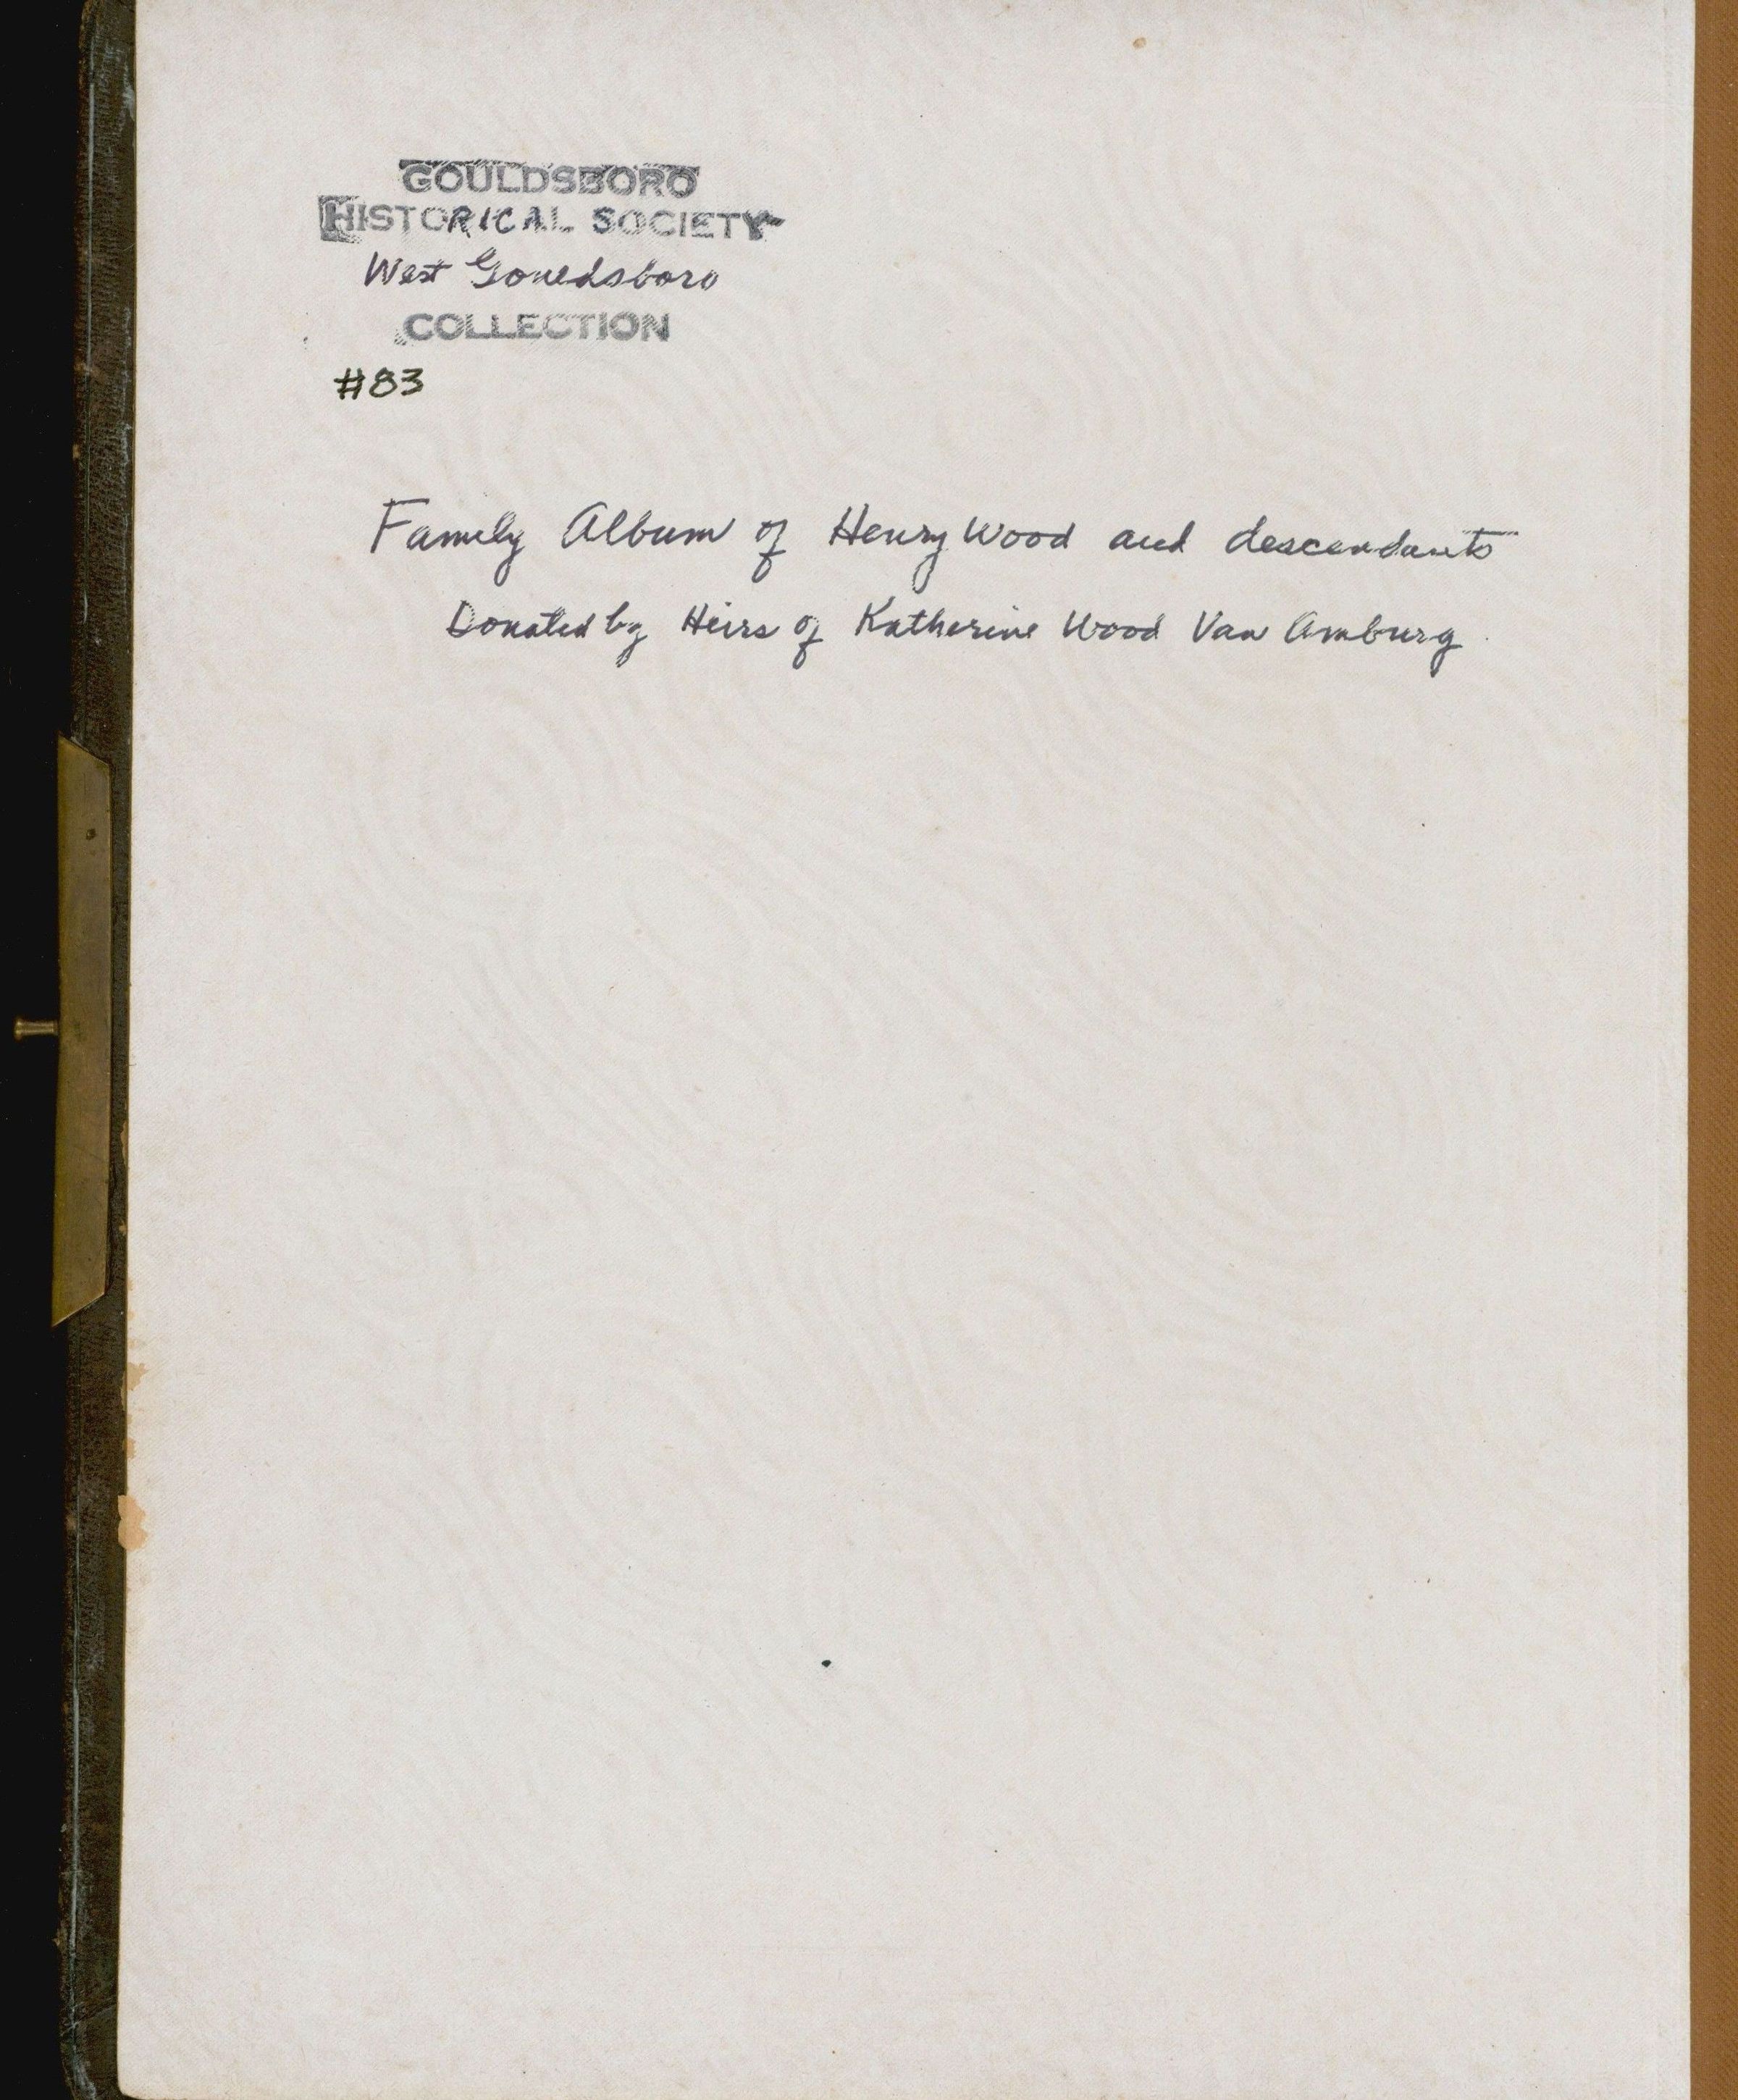 GOULDSBORO
HISTORICAL SOCIETY
West Gouldsboro
COLLECTION
#83
Family Album of Henry Wood and descendants
Donated by Heirs of Katherine Wood Van Amburg.